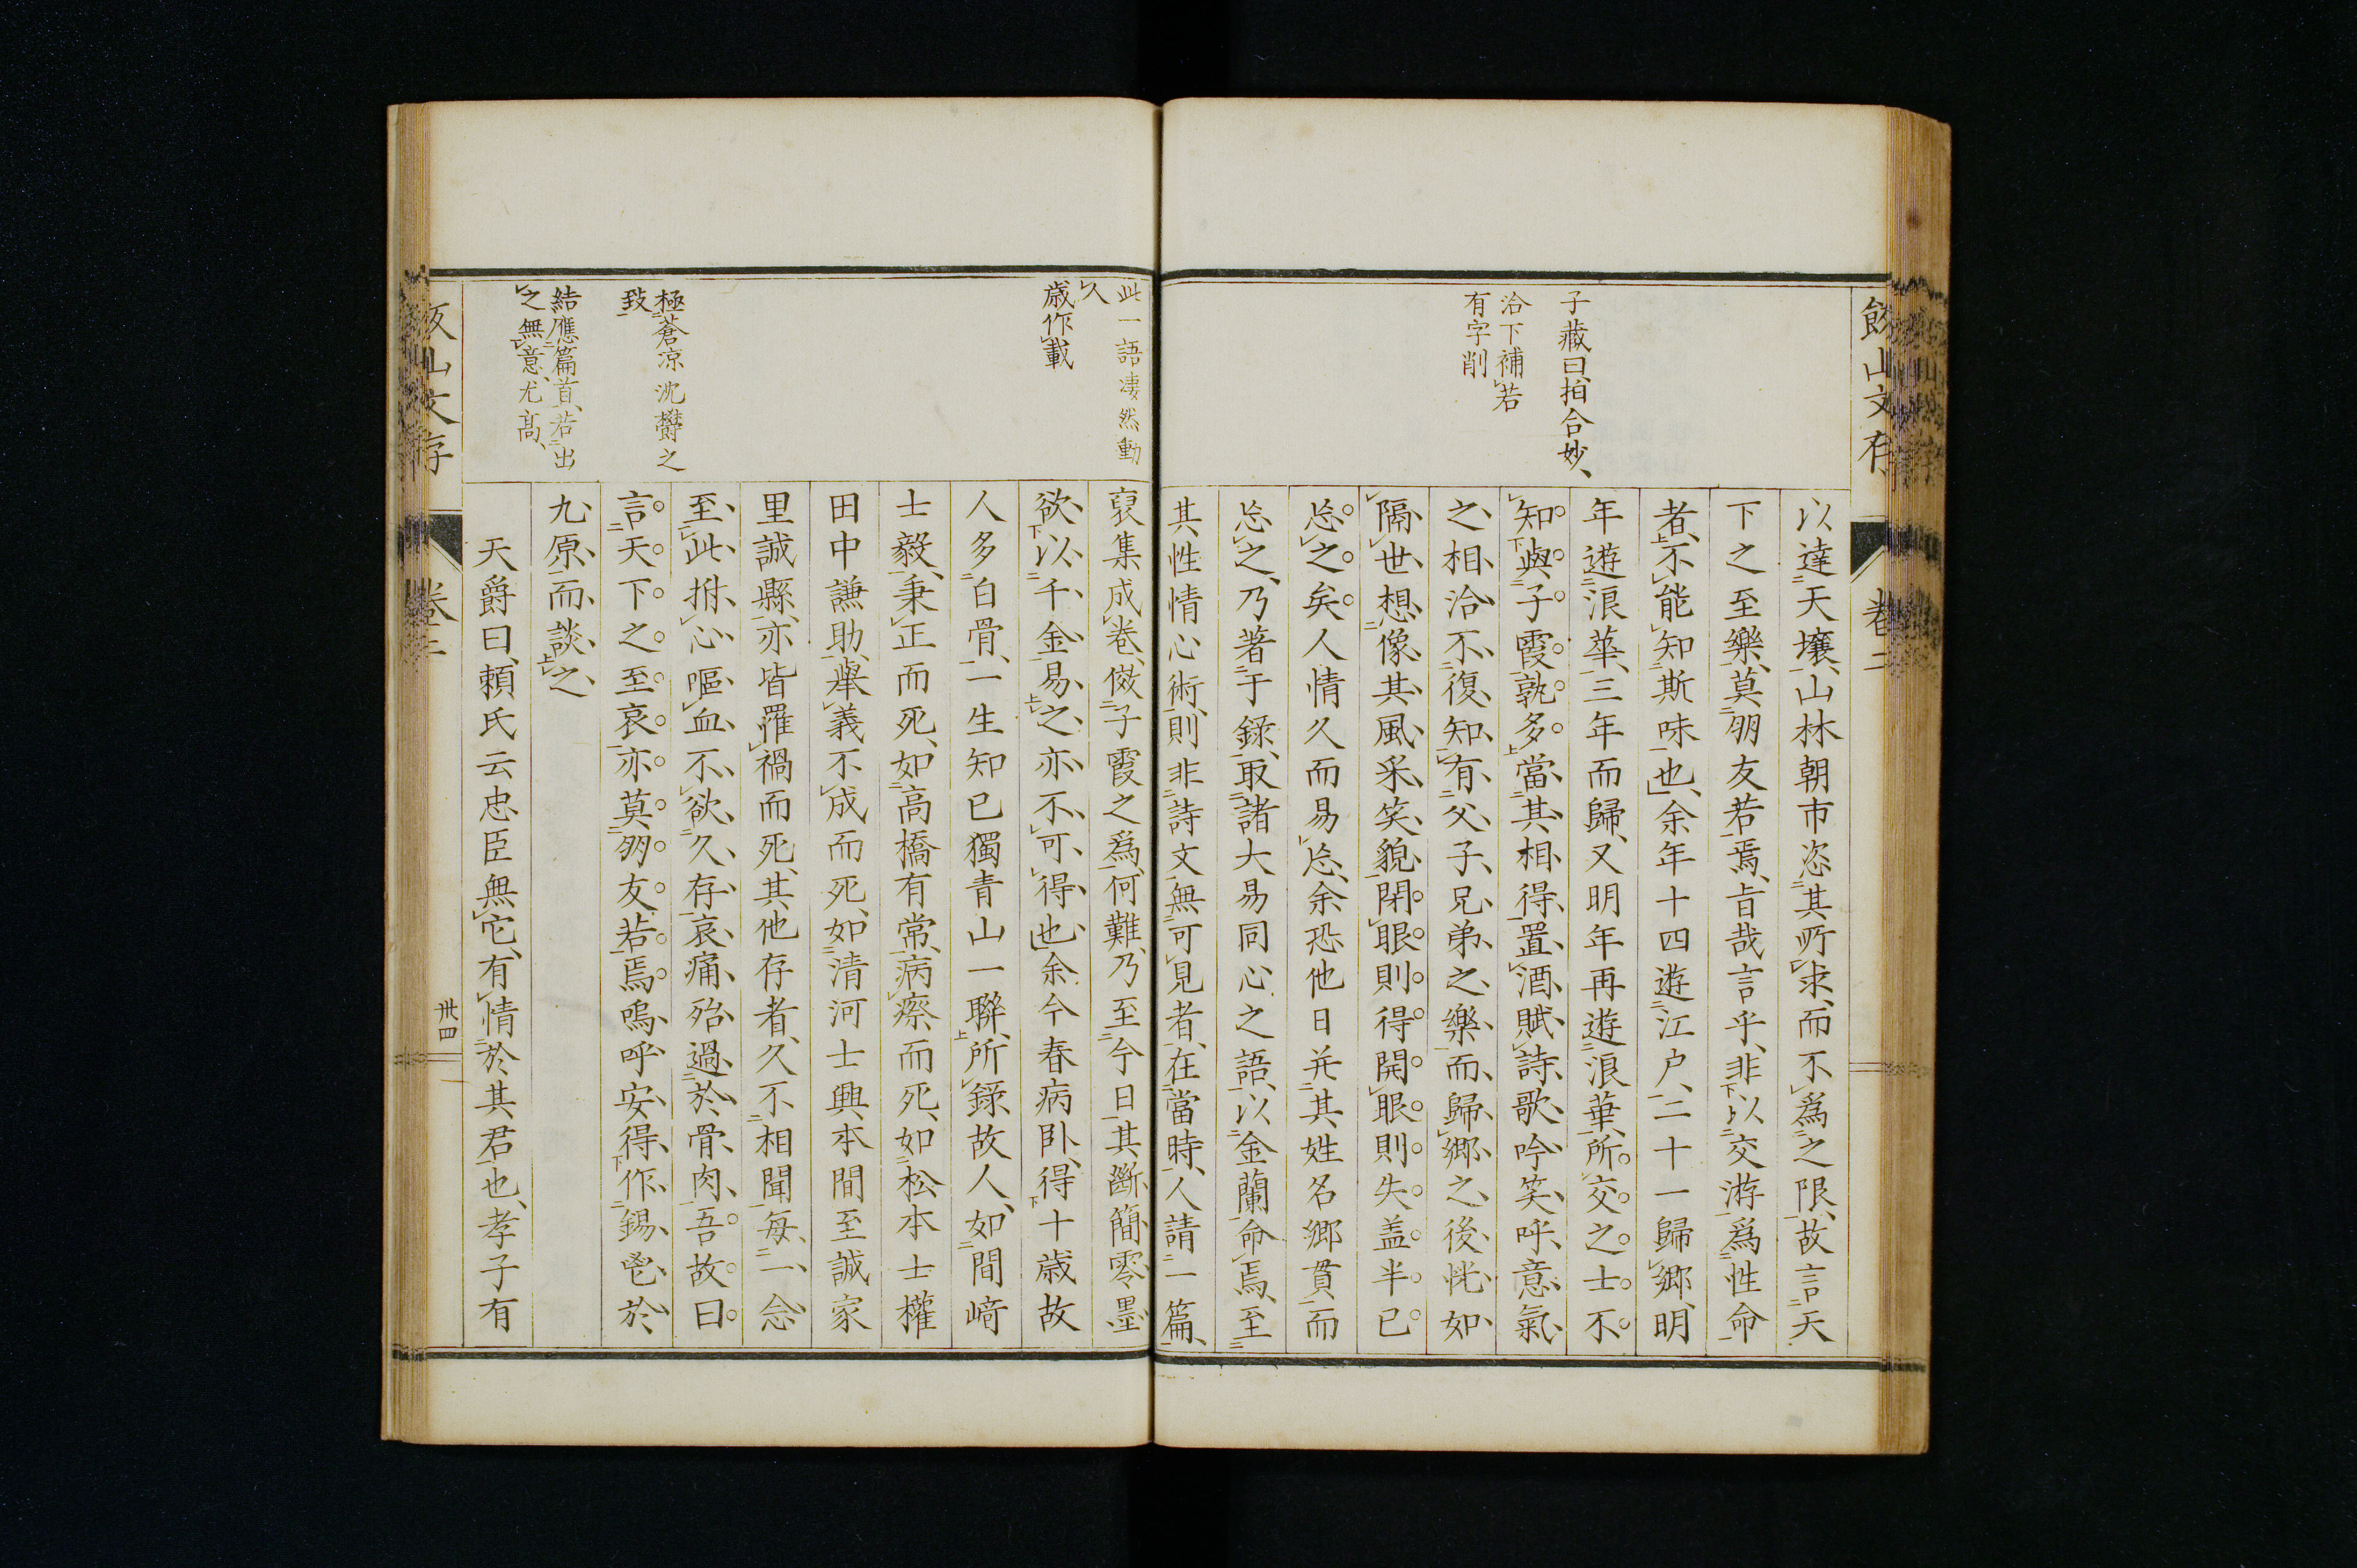 飯山文存
卷二
子藏曰、拍合妙、
洽下補若
有字削
以達天壤、山林朝市恣其所求、而不爲之限、故言天
下之至樂、莫朋友若焉、旨哉言乎、非以交游爲性命
者、不能知斯味也、余年十四遊江戶、二十一歸鄉、明
年遊浪華、三年而歸、又明年再遊浪華、所交之士不
知與子霞孰多、當其相得、置酒賦詩、歌吟笑呼、意氣
之相洽、不復知有父子兄弟之樂、而歸鄉之後、恍如
隔世、想像其風采笑貌、閉眼則得、開眼則失、盖半已
忘之矣、人情久而易忘、余恐他日并其姓名鄉貫而
忘之、乃著于錄、取諸大易同心之語、以金蘭命焉、至
其性情心術、則非詩文無可見者、在當時、人請一篇、
此一語凄然動
人
歲作載
極蒼凉沈欝之
致
結應篇首、若出
之無意、尤高、
裒集成卷、傚子霞之爲、何難、乃至今日、其斷簡零墨
欲以千金易之、亦不可得也、余今春病臥、得十歲故
人多白骨、一生知已獨青山一聯、所錄故人、如間﨑
士毅、秉正而死、如高橋有常、病瘵而死、如松本士權
田中謙助、擧義不成而死、如清河士興、本間至誠家
里誠縣、亦皆罹禍而死、其他存者、久不相聞、每一念
至此、拊心嘔血、不欲久存、哀痛殆過於骨肉、吾故曰
言天下之至哀、亦莫朋友若焉、嗚呼、安得作錫鬯於
九原而談之、
天爵曰、賴氏云忠臣無它、有情於其君也、孝子有
飯山文存
卷二
卅四